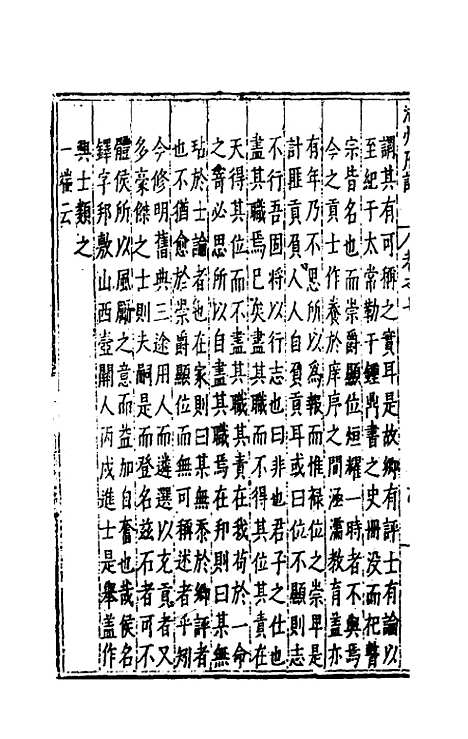 謂其有可稱之實耳是故鄉有評士有論以
至紀于太常勒于鍾鼎書之史冊没而祀瞽
宗皆名也而崇爵顯位烜耀一時者不與焉
今之貢士作養於庠序之間涵濡教育蓋亦
有年乃不思所以為報而惟禄位之崇卑是
計匪貢負人人自負貢耳或曰位不顯則志
不行吾固將以行志也曰非也君子之仕也
盡其職焉已矣盡其職而不得其位其責在
天得其位而不盡其職其責在我苟於一命
之寄必思所以自盡其職焉在邦則曰某無
玷於士論者也在家則曰某無忝於鄉評者
也不猶愈於崇爵顯位而無可稱述者乎矧
今修明舊典三途用人而遴選以充貢者又
多豪傑之士則夫嗣是而登名兹石者可不
體侯所以風厲之意而益加自奮也哉侯名
鐸字邦敷山西壺關人丙戌進士是舉蓋作
興士類之
一㩁云